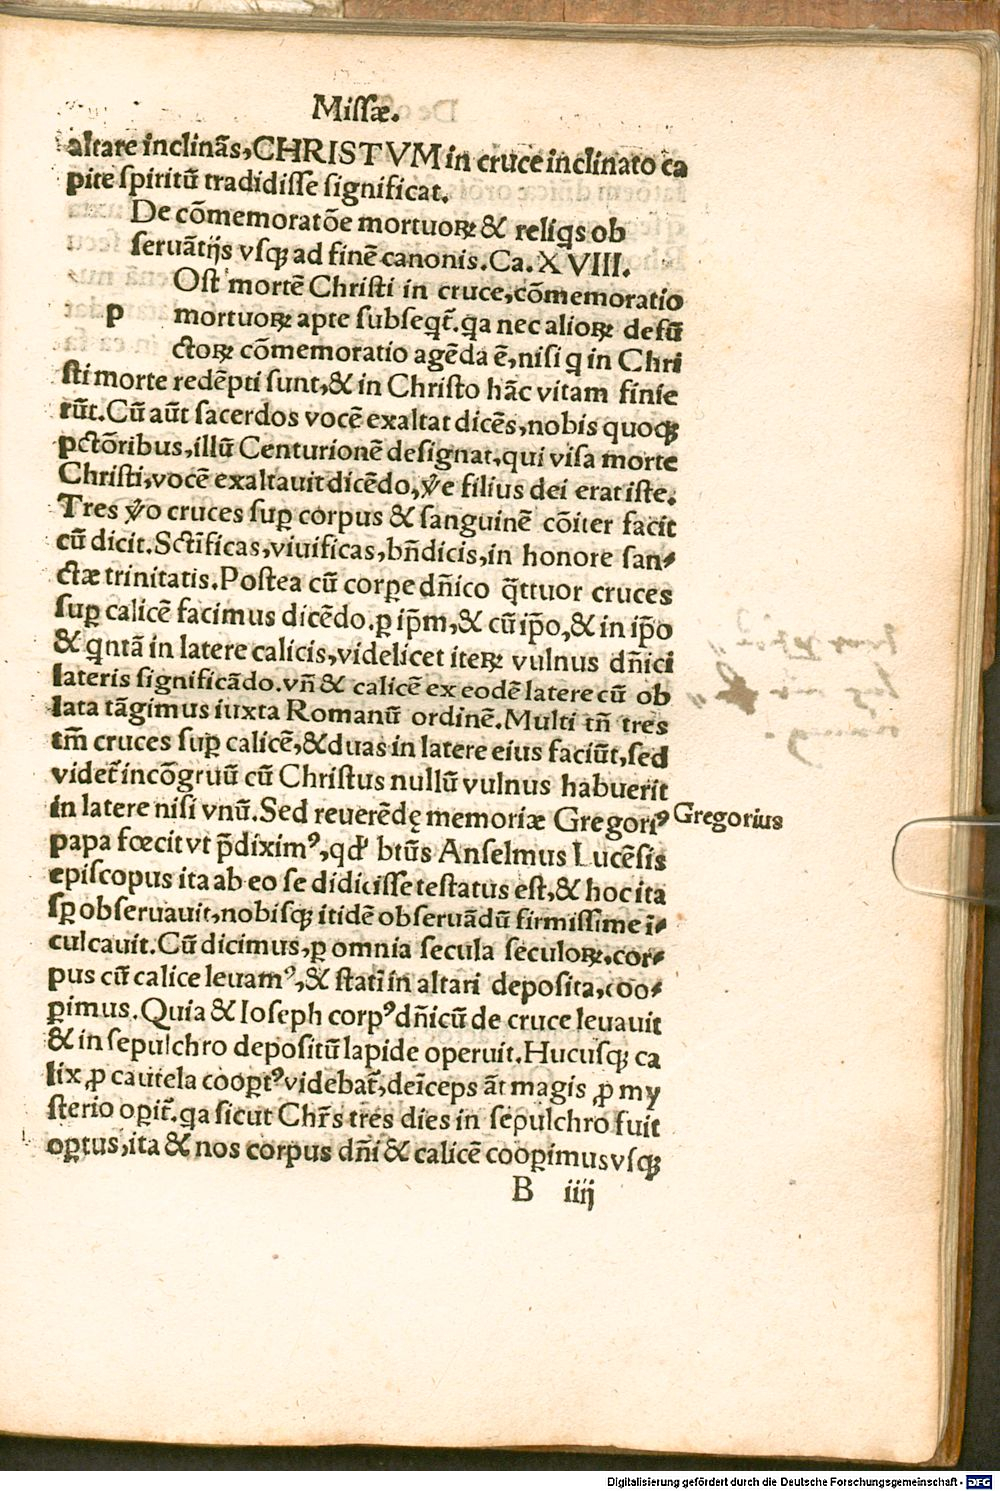 Missæ.
altare inclinãs,CHRISTVM in cruce inclinato ca
pite spiritũ tradidisse significat.
De cõmemoratõe mortuoꝝ & reliqs ob
seruãtijs vsqꝫ ad finẽ canonis.Ca.XVIII.
Ost mortẽ Christi in cruce,cõmemoratio
p mortuoꝝ apte subseqt̃.qa nec alioꝝ defũ
ctoꝝ cõmemoratio agẽda ẽ,nisi q in Chri
sti morte redẽpti sunt,& in Christo hãc vitam finie
rũt.Cũ aũt sacerdos vocẽ exaltat dicẽs,nobis quoqꝫ
pctõribus,illũ Centurionẽ designat,qui visa morte
Christi,vocẽ exaltauit dicẽdo,ṽe filius dei erat iste.
Tres ṽo cruces suꝑ corpus & sanguinẽ cõiter facit
cũ dicit.Sctĩficas,viuificas,bñdicis,in honore san⸗
ctæ trinitatis.Postea cũ corꝑe dñico q̃ttuor cruces
suꝑ calicẽ facimus dicẽdo.ꝑ ip̃m,& cũ ip̃o,& in ip̃o
& qntã in latere calicis,videlicet iteꝝ vulnus dñici
lateris significãdo.vñ & calicẽ ex eodẽ latere cũ ob
lata tãgimus iuxta Romanũ ordinẽ.Multi tñ tres
tm̃ cruces suꝑ calicẽ,& duas in latere eius faciũt,sed
videt̃ incõgruũ cũ Christus nullũ vulnus habuerit
in latere nisi vnũ.Sed reuerẽdę memoriæ Gregoriꝰ
Gregorius
papa fœcit vt p̃diximꝰ,qď btũs Anselmus Lucẽsis
episcopus ita ab eo se didicisse testatus est,& hoc ita
sꝑ obseruauit,nobisqꝫ itidẽ obseruãdũ firmissime ĩ⸗
culcauit.Cũ dicimus,ꝑ omnia secula seculoꝝ.cor⸗
pus cũ calice leuamꝰ,& statĩ in altari deposita,coo⸗
ꝑimus.Quia & Ioseph corpꝰ dñicũ de cruce leuauit
& in sepulchro depositũ lapide operuit.Hucusqꝫ ca
lix ꝓ cautela cooꝑtꝰ videbat̃,deĩceps ãt magis ꝓ my
sterio oꝑit̃.qa sicut Chr̃s tres dies in sepulchro fuit
oꝑtus,ita & nos corpus dñi & calicẽ cooꝑimus vsqꝫ
B iiij
Digitalisierung gefördert durch die Deutsche Forschungsgemeinschaft - DFG